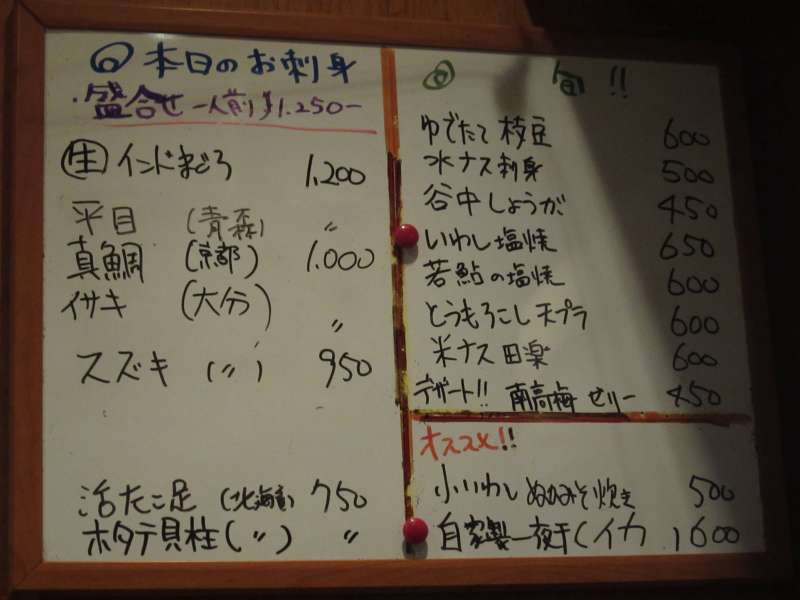 本日のお刺身
盛合せ 一人前 ¥1,250-
生 インドまぐろ 1,200
平目 (青森) 〃
真鯛 (京都) 1,000
イサキ (大分) 〃
スズキ (〃) 950
活たこ足 (北海道) 750
ホタテ貝柱 (〃) 〃
旬!!
ゆでたて枝豆 600
水ナス刺身 500
谷中しょうが 450
いわし塩焼 650
若鮎の塩焼 600
とうもろこし天プラ 600
米ナス田楽 600
デザート!! 南高梅ゼリー 450
オススメ!!
小いわしぬかみそ炊き 500
自家製一夜干(イカ) 600